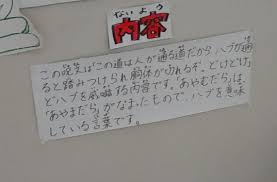 ないよう
内容
この呪文は「この道は人が通る道だからハブが通
ると踏みつけられ胴体が切れるぞ。どけどけ」
とハブを威嚇する内容です。「あやむだら」は、
「あやまだら」がなまったもので、ハブを意味
している言葉です。